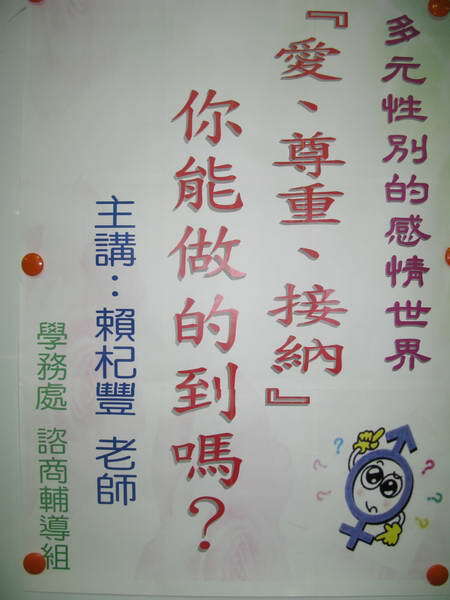 多元性別的感情世界
『愛、尊重、接納』
你能做的到嗎？
主講：賴杞豐 老師
學務處 諮商輔導組
? ? ? ?